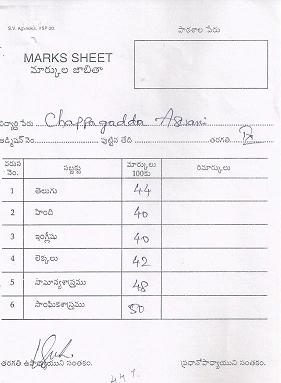 పాఠశాల పేరు
MARKS SHEET
మార్కుల జాబితా
విద్యార్థి పేరు Chappagadda Asvani
అడ్మిషన్ నెం. పుట్టిన తేది తరగతి
వరుస నెం. సబ్జక్టు మార్కులు 100కు రిమార్కులు
1 తెలుగు 44
2 హింది 40
3 ఇంగ్లీషు 40
4 లెక్కలు 42
5 సామాన్యశాస్త్రము 48
6 సాంఘికశాస్త్రము 50
తరగతి ఉపాధ్యాయుని సంతకం. ప్రధానోపాధ్యాయుని సంతకం.